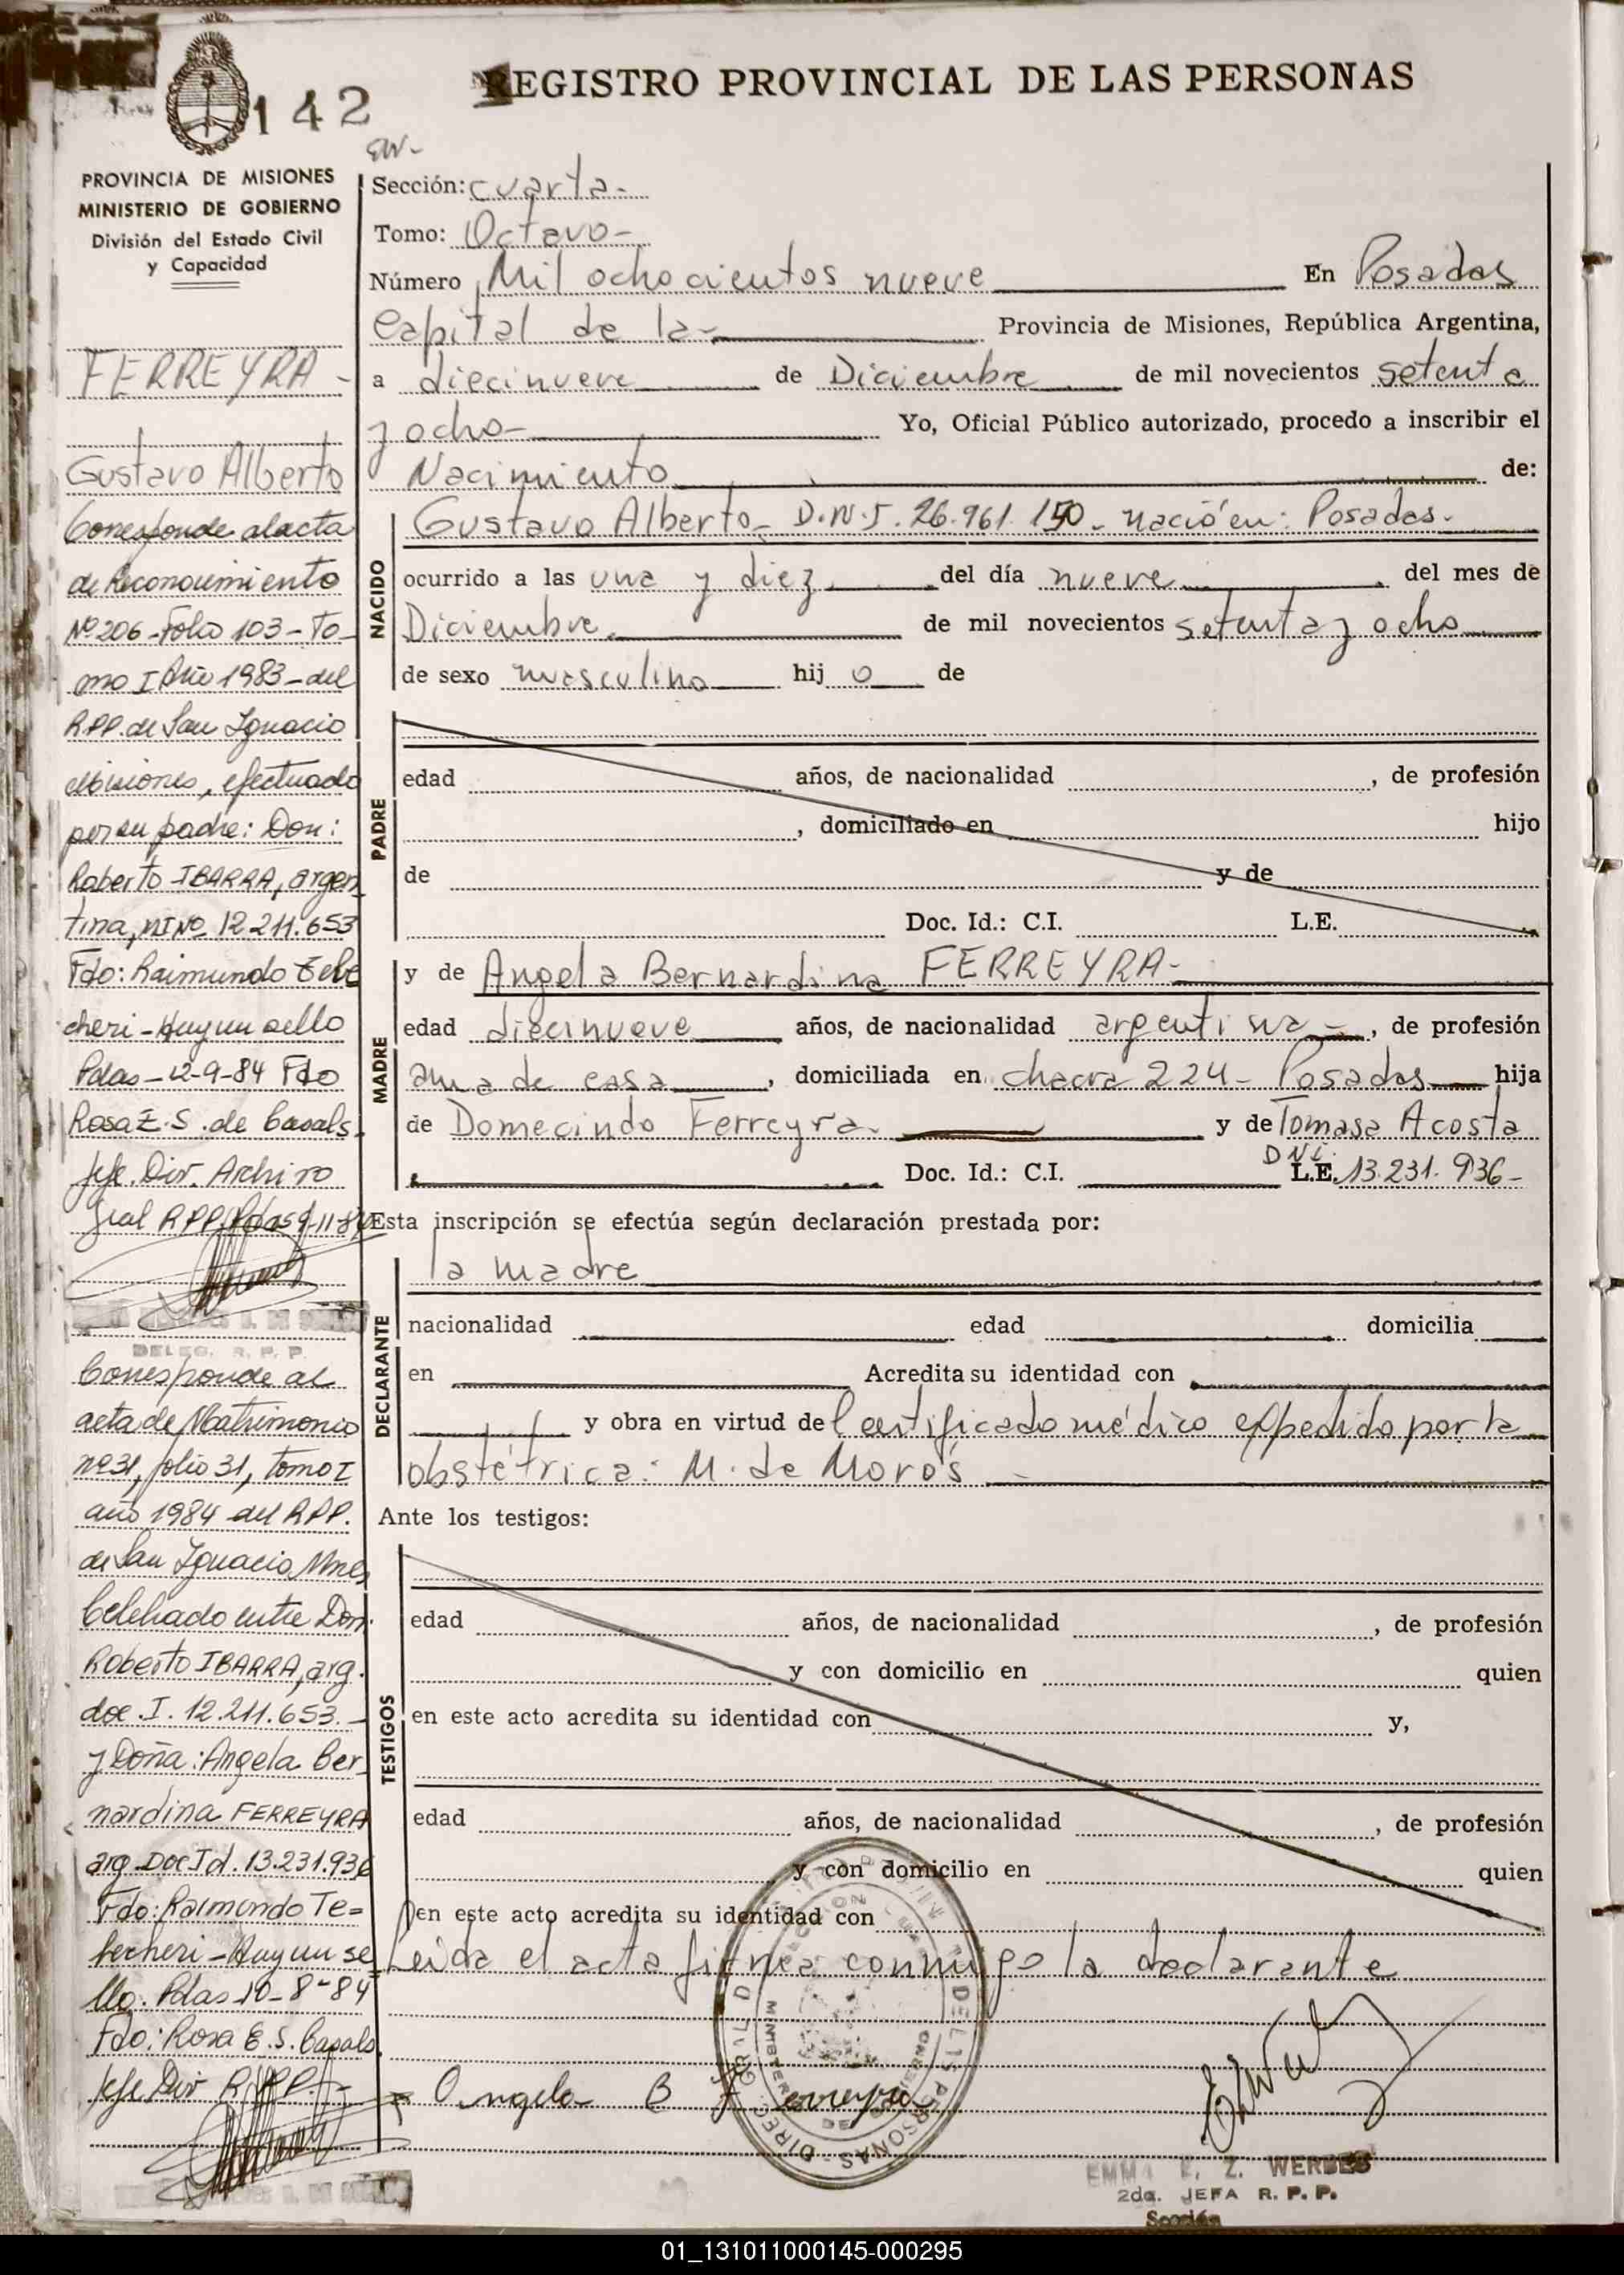 142
REGISTRO PROVINCIAL DE LAS PERSONAS
PROVINCIA DE MISIONES
MINISTERIO DE GOBIERNO
División del Estado Civil
y Capacidad
FERREYRA -
Gustavo Alberto
Corresponde al acta
de Reconocimiento
Nº 206 - Folio 103 - To-
mo I Año 1983 - del
R.P.P. de San Ignacio
Misiones, efectuado
por su padre: Don:
Roberto IBARRA, argen-
tina, MI Nº 12.211.653
Fdo: Raimundo
cheri - Hay un sello
Pdas - 12-9-84 Fdo
Rosa E. S. de Casals.
Jefe. Div. Archivo
Gral R.P.P. Pdas 9-11-84
DELEG. R. P. P.
Corresponde al
acta de Matrimonio
nº 31, folio 31, tomo I
año 1984 del R.P.P.
de San Ignacio, Mnes
Celebrado entre Don.
Roberto IBARRA, arg.
doc. I. 12.211.653.-
y Doña: Angela Ber-
nardina FERREYRA
arg. Doc Id. 13.231.936
Fdo: Raimundo Te=
becheri - Hay un se
llo. Pdas 10-8-84
Fdo: Rosa E. S. Casals.
Jefe Div R.P.P. -
Sección: cuarta -
Tomo: Octavo -
Número Mil ochocientos nueve En Posadas
Capital de la - Provincia de Misiones, República Argentina,
a diecinueve de Diciembre de mil novecientos setenta
y ocho - Yo, Oficial Público autorizado, procedo a inscribir el
Nacimiento de:
NACIDO
Gustavo Alberto - D.N.I. 26.961.150 - nació en: Posadas -
ocurrido a las una y diez del día nueve del mes de
Diciembre de mil novecientos setenta y ocho
de sexo masculino hij o de
PADRE
edad años, de nacionalidad , de profesión
, domiciliado en hijo
de y de
Doc. Id.: C.I. L.E.
MADRE
y de Angela Bernardina FERREYRA -
edad diecinueve años, de nacionalidad argentina -, de profesión
ama de casa, domiciliada en chacra 224 - Posadas hija
de Domecindo Ferreyra. y de Tomasa Acosta
DNI.
Doc. Id.: C.I. L.E. 13.231.936 -
Esta inscripción se efectúa según declaración prestada por:
DECLARANTE
la madre
nacionalidad edad domicilia
en Acredita su identidad con
y obra en virtud del Certificado médico expedido por la
obstétrica: M. de Morós -
Ante los testigos:
TESTIGOS
edad años, de nacionalidad , de profesión
y con domicilio en quien
en este acto acredita su identidad con y,
edad años, de nacionalidad , de profesión
y con domicilio en quien
en este acto acredita su identidad con
Leída el acta firma conmigo la declarante
Angela B Ferreyra
EMMA E. Z. WERBES
2da. JEFA R. P. P.
Sección
01_131011000145-000295